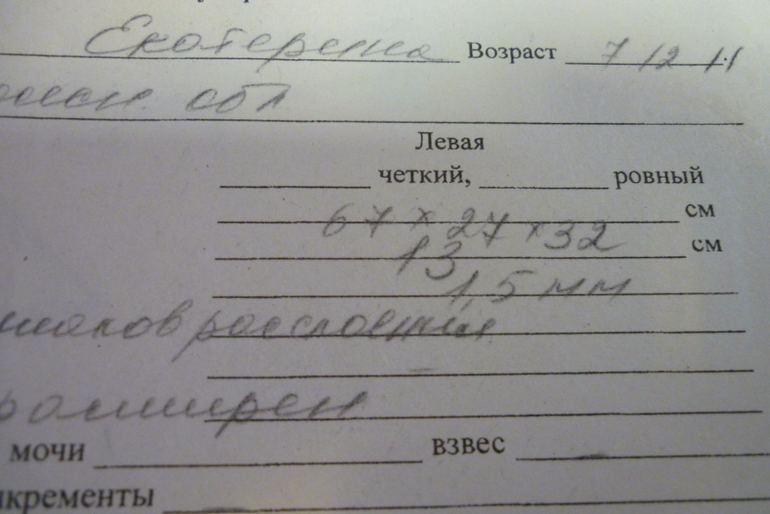 Екатерина Возраст 7 12 11
обл
Левая
четкий, ровный
67 х 27 х 32 см
13 см
1,5 мм
расслоения
расширен
мочи взвес
нкременты